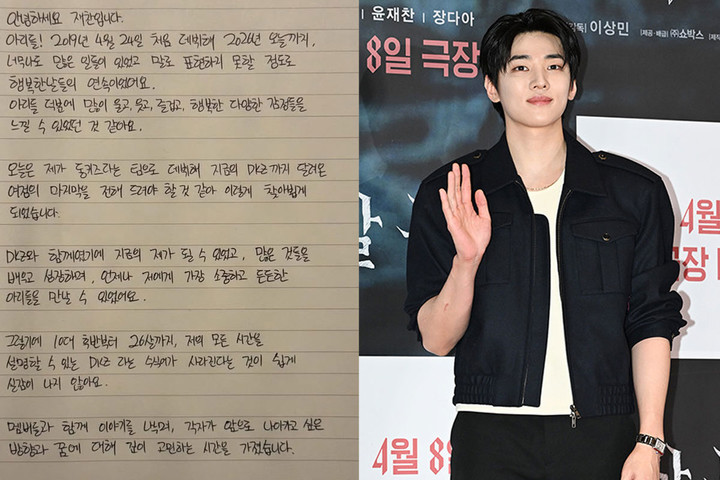 안녕하세요 재찬입니다.
아리들! 2019년 4월 24일 처음 데뷔해 2026년 오늘까지,
너무나도 많은 일들이 있었고 말로 표현하지 못할 정도로
행복한날들의 연속이었어요.
아리들 덕분에 많이 울고, 웃고, 즐겁고, 행복한 다양한 감정들을
느낄 수 있었던 것 같아요.
오늘은 제가 동키즈라는 팀으로 데뷔해 지금의 DKZ까지 달려온
여정의 마지막을 전해 드려야 할 것 같아 이렇게 찾아뵙게
되었습니다.
DKZ와 함께였기에 지금의 제가 될 수 있었고, 많은 것들을
배우고 성장하며, 언제나 저에게 가장 소중하고 든든한
아리들을 만날 수 있었어요.
그렇기에 10대 후반부터 26살까지, 저의 모든 시간을
설명할 수 있는 DKZ 라는 수식어가 사라진다는 것이 쉽게
실감이 나지 않아요.
멤버들과 함께 이야기를 나누며, 각자가 앞으로 나아가고 싶은
방향과 꿈에 대해 깊이 고민하는 시간을 가졌습니다.
윤재찬 | 장다아
감독| 이상민
|제공·배급| ㈜쇼박스 |제작
8일 극장
4월
극장
4월 8일